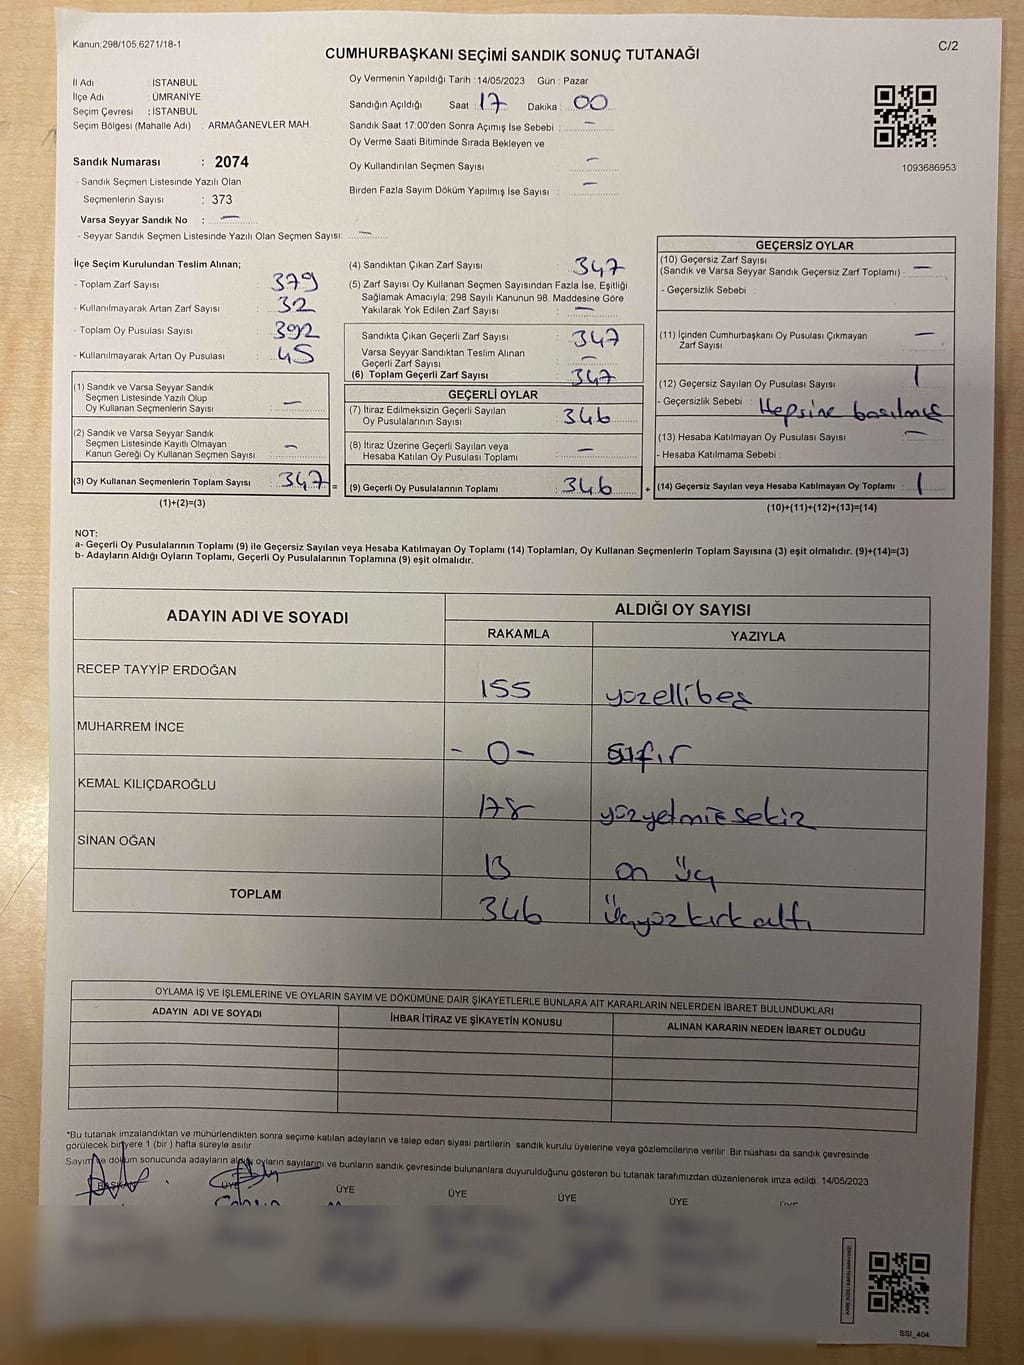 Kanun;298/105,6271/18-1
C/2
CUMHURBAŞKANI SEÇİMİ SANDIK SONUÇ TUTANAĞI
İl Adı : İSTANBUL
İlçe Adı : ÜMRANİYE
Seçim Çevresi : İSTANBUL
Seçim Bölgesi (Mahalle Adı) : ARMAĞANEVLER MAH.
Sandık Numarası : 2074
- Sandık Seçmen Listesinde Yazılı Olan
Seçmenlerin Sayısı : 373
Varsa Seyyar Sandık No : —
- Seyyar Sandık Seçmen Listesinde Yazılı Olan Seçmen Sayısı: —
Oy Vermenin Yapıldığı Tarih : 14/05/2023 Gün : Pazar
Sandığın Açıldığı Saat : 17 Dakika : 00
Sandık Saat 17:00'den Sonra Açımış İse Sebebi : —
Oy Verme Saati Bitiminde Sırada Bekleyen ve
Oy Kullandırılan Seçmen Sayısı —
Birden Fazla Sayım Döküm Yapılmış İse Sayısı : —
1093686953
İlçe Seçim Kurulundan Teslim Alınan;
- Toplam Zarf Sayısı : 379
- Kullanılmayarak Artan Zarf Sayısı : 32
- Toplam Oy Pusulası Sayısı : 392
- Kullanılmayarak Artan Oy Pusulası : 45
(1) Sandık ve Varsa Seyyar Sandık
Seçmen Listesinde Yazılı Olup
Oy Kullanan Seçmenlerin Sayısı : —
(2) Sandık ve Varsa Seyyar Sandık
Seçmen Listesinde Kayıtlı Olmayan
Kanun Gereği Oy Kullanan Seçmen Sayısı : —
(3) Oy Kullanan Seçmenlerin Toplam Sayısı : 347 =
(1)+(2)=(3)
(4) Sandıktan Çıkan Zarf Sayısı : 347
(5) Zarf Sayısı Oy Kullanan Seçmen Sayısından Fazla İse, Eşitliği
Sağlamak Amacıyla; 298 Sayılı Kanunun 98. Maddesine Göre
Yakılarak Yok Edilen Zarf Sayısı : —
Sandıkta Çıkan Geçerli Zarf Sayısı : 347
Varsa Seyyar Sandıktan Teslim Alınan
Geçerli Zarf Sayısı : —
(6) Toplam Geçerli Zarf Sayısı : 347
GEÇERLİ OYLAR
(7) İtiraz Edilmeksizin Geçerli Sayılan
Oy Pusulalarının Sayısı : 346
(8) İtiraz Üzerine Geçerli Sayılan veya
Hesaba Katılan Oy Pusulası Toplamı : —
(9) Geçerli Oy Pusulalarının Toplamı : 346 +
GEÇERSİZ OYLAR
(10) Geçersiz Zarf Sayısı
(Sandık ve Varsa Seyyar Sandık Geçersiz Zarf Toplamı) : —
- Geçersizlik Sebebi :
(11) İçinden Cumhurbaşkanı Oy Pusulası Çıkmayan
Zarf Sayısı —
(12) Geçersiz Sayılan Oy Pusulası Sayısı : 1
- Geçersizlik Sebebi : Hepsine basılmış
(13) Hesaba Katılmayan Oy Pusulası Sayısı : —
- Hesaba Katılmama Sebebi :
(14) Geçersiz Sayılan veya Hesaba Katılmayan Oy Toplamı : 1
(10)+(11)+(12)+(13)=(14)
NOT:
a- Geçerli Oy Pusulalarının Toplamı (9) ile Geçersiz Sayılan veya Hesaba Katılmayan Oy Toplamı (14) Toplamları, Oy Kullanan Seçmenlerin Toplam Sayısına (3) eşit olmalıdır. (9)+(14)=(3)
b- Adayların Aldığı Oyların Toplamı, Geçerli Oy Pusulalarının Toplamına (9) eşit olmalıdır.
ADAYIN ADI VE SOYADI
ALDIĞI OY SAYISI
RAKAMLA YAZIYLA
RECEP TAYYİP ERDOĞAN 155 yüzellibeş
MUHARREM İNCE - 0 - sıfır
KEMAL KILIÇDAROĞLU 178 yüzyetmiş sekiz
SİNAN OĞAN 13 on üç
TOPLAM 346 üçyüz kırk altı
OYLAMA İŞ VE İŞLEMLERİNE VE OYLARIN SAYIM VE DÖKÜMÜNE DAİR ŞİKAYETLERLE BUNLARA AİT KARARLARIN NELERDEN İBARET BULUNDUKLARI
ADAYIN ADI VE SOYADI İHBAR İTİRAZ VE ŞİKAYETİN KONUSU ALINAN KARARIN NEDEN İBARET OLDUĞU
*Bu tutanak imzalandıktan ve mühürlendikten sonra seçime katılan adayların ve talep eden siyasi partilerin sandık kurulu üyelerine veya gözlemcilerine verilir. Bir nüshası da sandık çevresinde
görülecek bir yere 1 (bir ) hafta süreyle asılır.
Sayım ve döküm sonucunda adayların aldığı oyların sayılarını ve bunların sandık çevresinde bulunanlara duyurulduğunu gösteren bu tutanak tarafımızdan düzenlenerek imza edildi. 14/05/2023
BAŞKAN ÜYE ÜYE ÜYE ÜYE ÜYE ÜYE
SSI_404